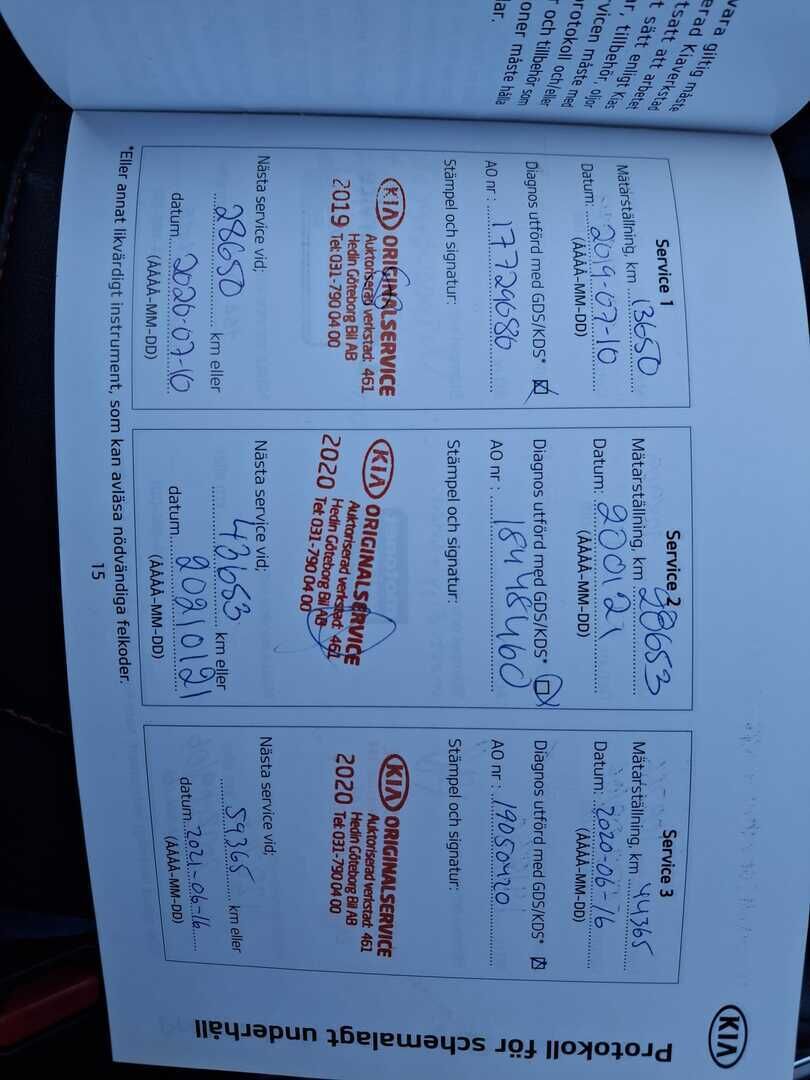 vara giltig måste
erad Kiaverkstad
tsatt att arbetet
t sätt enligt Kias
ar, tillbehör, oljor
rvicen måste med
protokoll och/eller
r och tillbehör som
oner måste hålla
lar.
KIA
Protokoll för schemalagt underhåll
Service 1
Mätarställning, km 13650
Datum: 2019-07-10
(ÅÅÅÅ-MM-DD)
Diagnos utförd med GDS/KDS*
AO nr: 17729686
Stämpel och signatur:
KIA ORIGINALSERVICE
Auktoriserad verkstad: 461
Hedin Göteborg Bil AB
2019 Tel: 031-790 04 00
Nästa service vid;
28650 km eller
datum 2020-07-10
(ÅÅÅÅ-MM-DD)
Service 2
Mätarställning, km 28653
Datum: 200121
(ÅÅÅÅ-MM-DD)
Diagnos utförd med GDS/KDS*
AO nr: 18448460
Stämpel och signatur:
KIA ORIGINALSERVICE
Auktoriserad verkstad: 461
Hedin Göteborg Bil AB
2020 Tel: 031-790 04 00
Nästa service vid;
43653 km eller
datum 20210121
(ÅÅÅÅ-MM-DD)
Service 3
Mätarställning, km 44365
Datum: 2020-06-16
(ÅÅÅÅ-MM-DD)
Diagnos utförd med GDS/KDS*
AO nr: 19050420
Stämpel och signatur:
KIA ORIGINALSERVICE
Auktoriserad verkstad: 461
Hedin Göteborg Bil AB
2020 Tel: 031-790 04 00
Nästa service vid;
59365 km eller
datum 2021-06-16
(ÅÅÅÅ-MM-DD)
*Eller annat likvärdigt instrument, som kan avläsa nödvändiga felkoder.
15